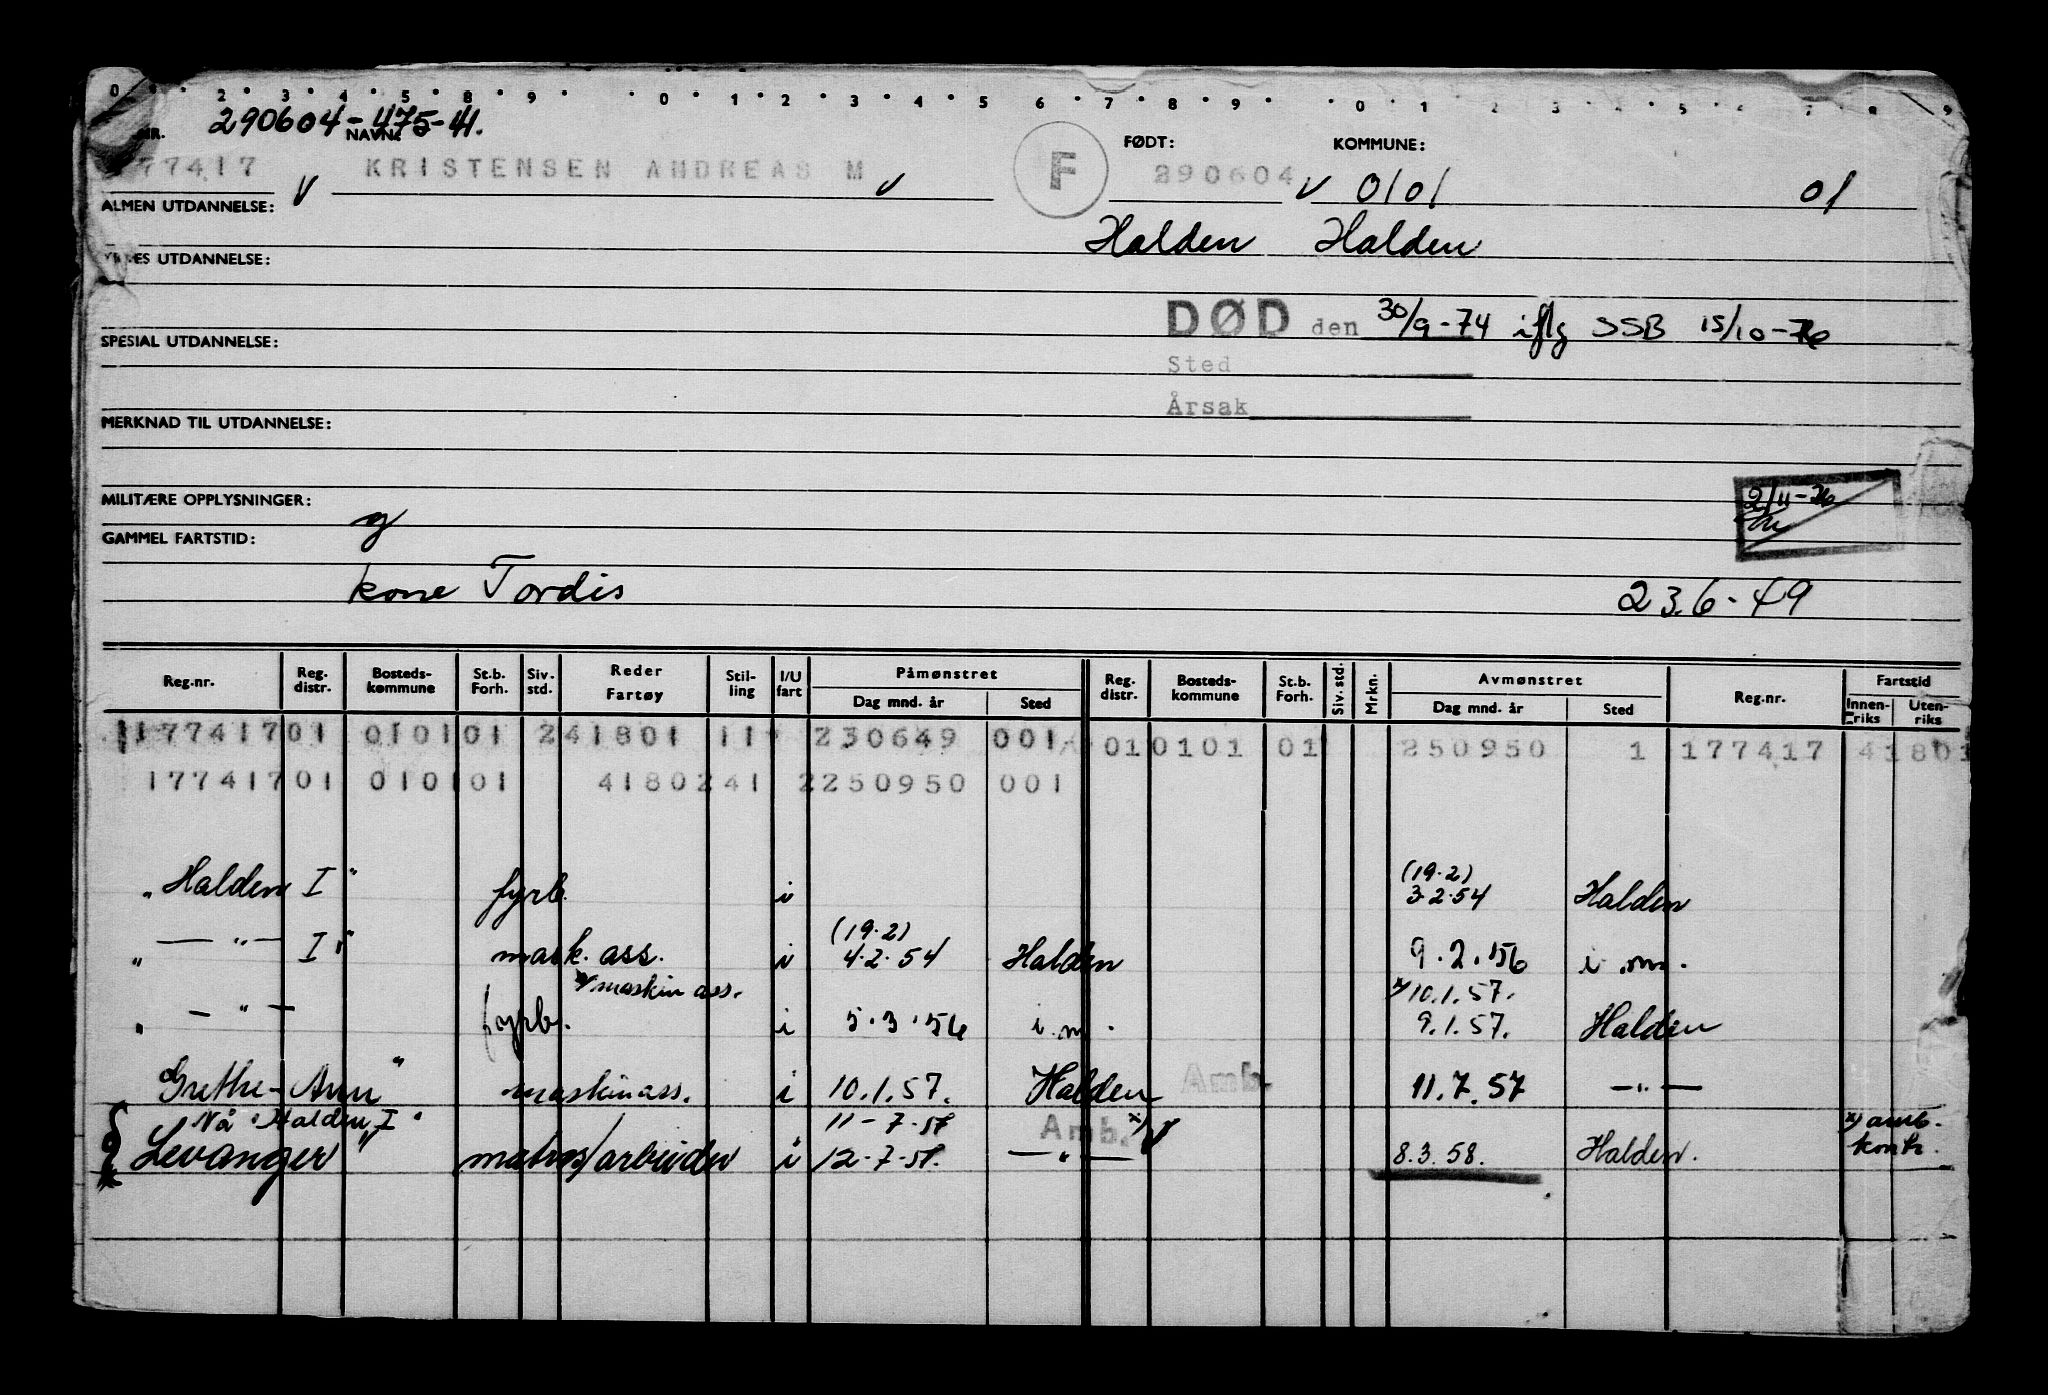 0 2 3 4 5 8 9 0 1 2 3 4 5 6 7 8 9 0 1 2 3 4 5 6 7 8 9
290604-475-41.
NR. NAVN: FØDT: KOMMUNE:
77417 V KRISTENSEN ANDREAS M V F 290604 V 0101 01
ALMEN UTDANNELSE: Halden Halden
YRKES UTDANNELSE:
DØD den 30/9-74 iflg SSB 15/10-76
SPESIAL UTDANNELSE: Sted
Årsak
MERKNAD TIL UTDANNELSE:
2/11-76
MILITÆRE OPPLYSNINGER: g
GAMMEL FARTSTID:
kone Tordis 23.6-49
Reg.nr. Reg. distr. Bosteds- kommune St.b. Forh. Siv. std. Reder Fartøy Stil- ling I/U fart Påmønstret Dag mnd. år Sted Reg. distr. Bosteds- kommune St.b. Forh. Siv. std. Mrkn. Avmønstret Dag mnd. år Sted Reg.nr. Fartstid Innen- riks Uten- riks
17741701 010101 241801 11 230649 001 010101 01 250950 1 177417 41801
17741701 010101 4180241 2250950 001
(19.2)
"Halden I" fyrb. i 3.2.54 Halden
(19.2)
" — " — I" mask. ass. i 4.2.54 Halden 9.2.56 i.m.
x/ maskin ass. x/ 10.1.57.
" — " — fyrb. i 5.3.56 i.m. 9.1.57. Halden
Grethe-Ann" maskinass. i 10.1.57. Halden Amb. 11.7.57 — " —
Nå "Halden I" 11-7-57 Amb. x) V x) amb.
Levanger" matros/arbeider i 12-7-57. — " — 8.3.58. Halden. kontr.